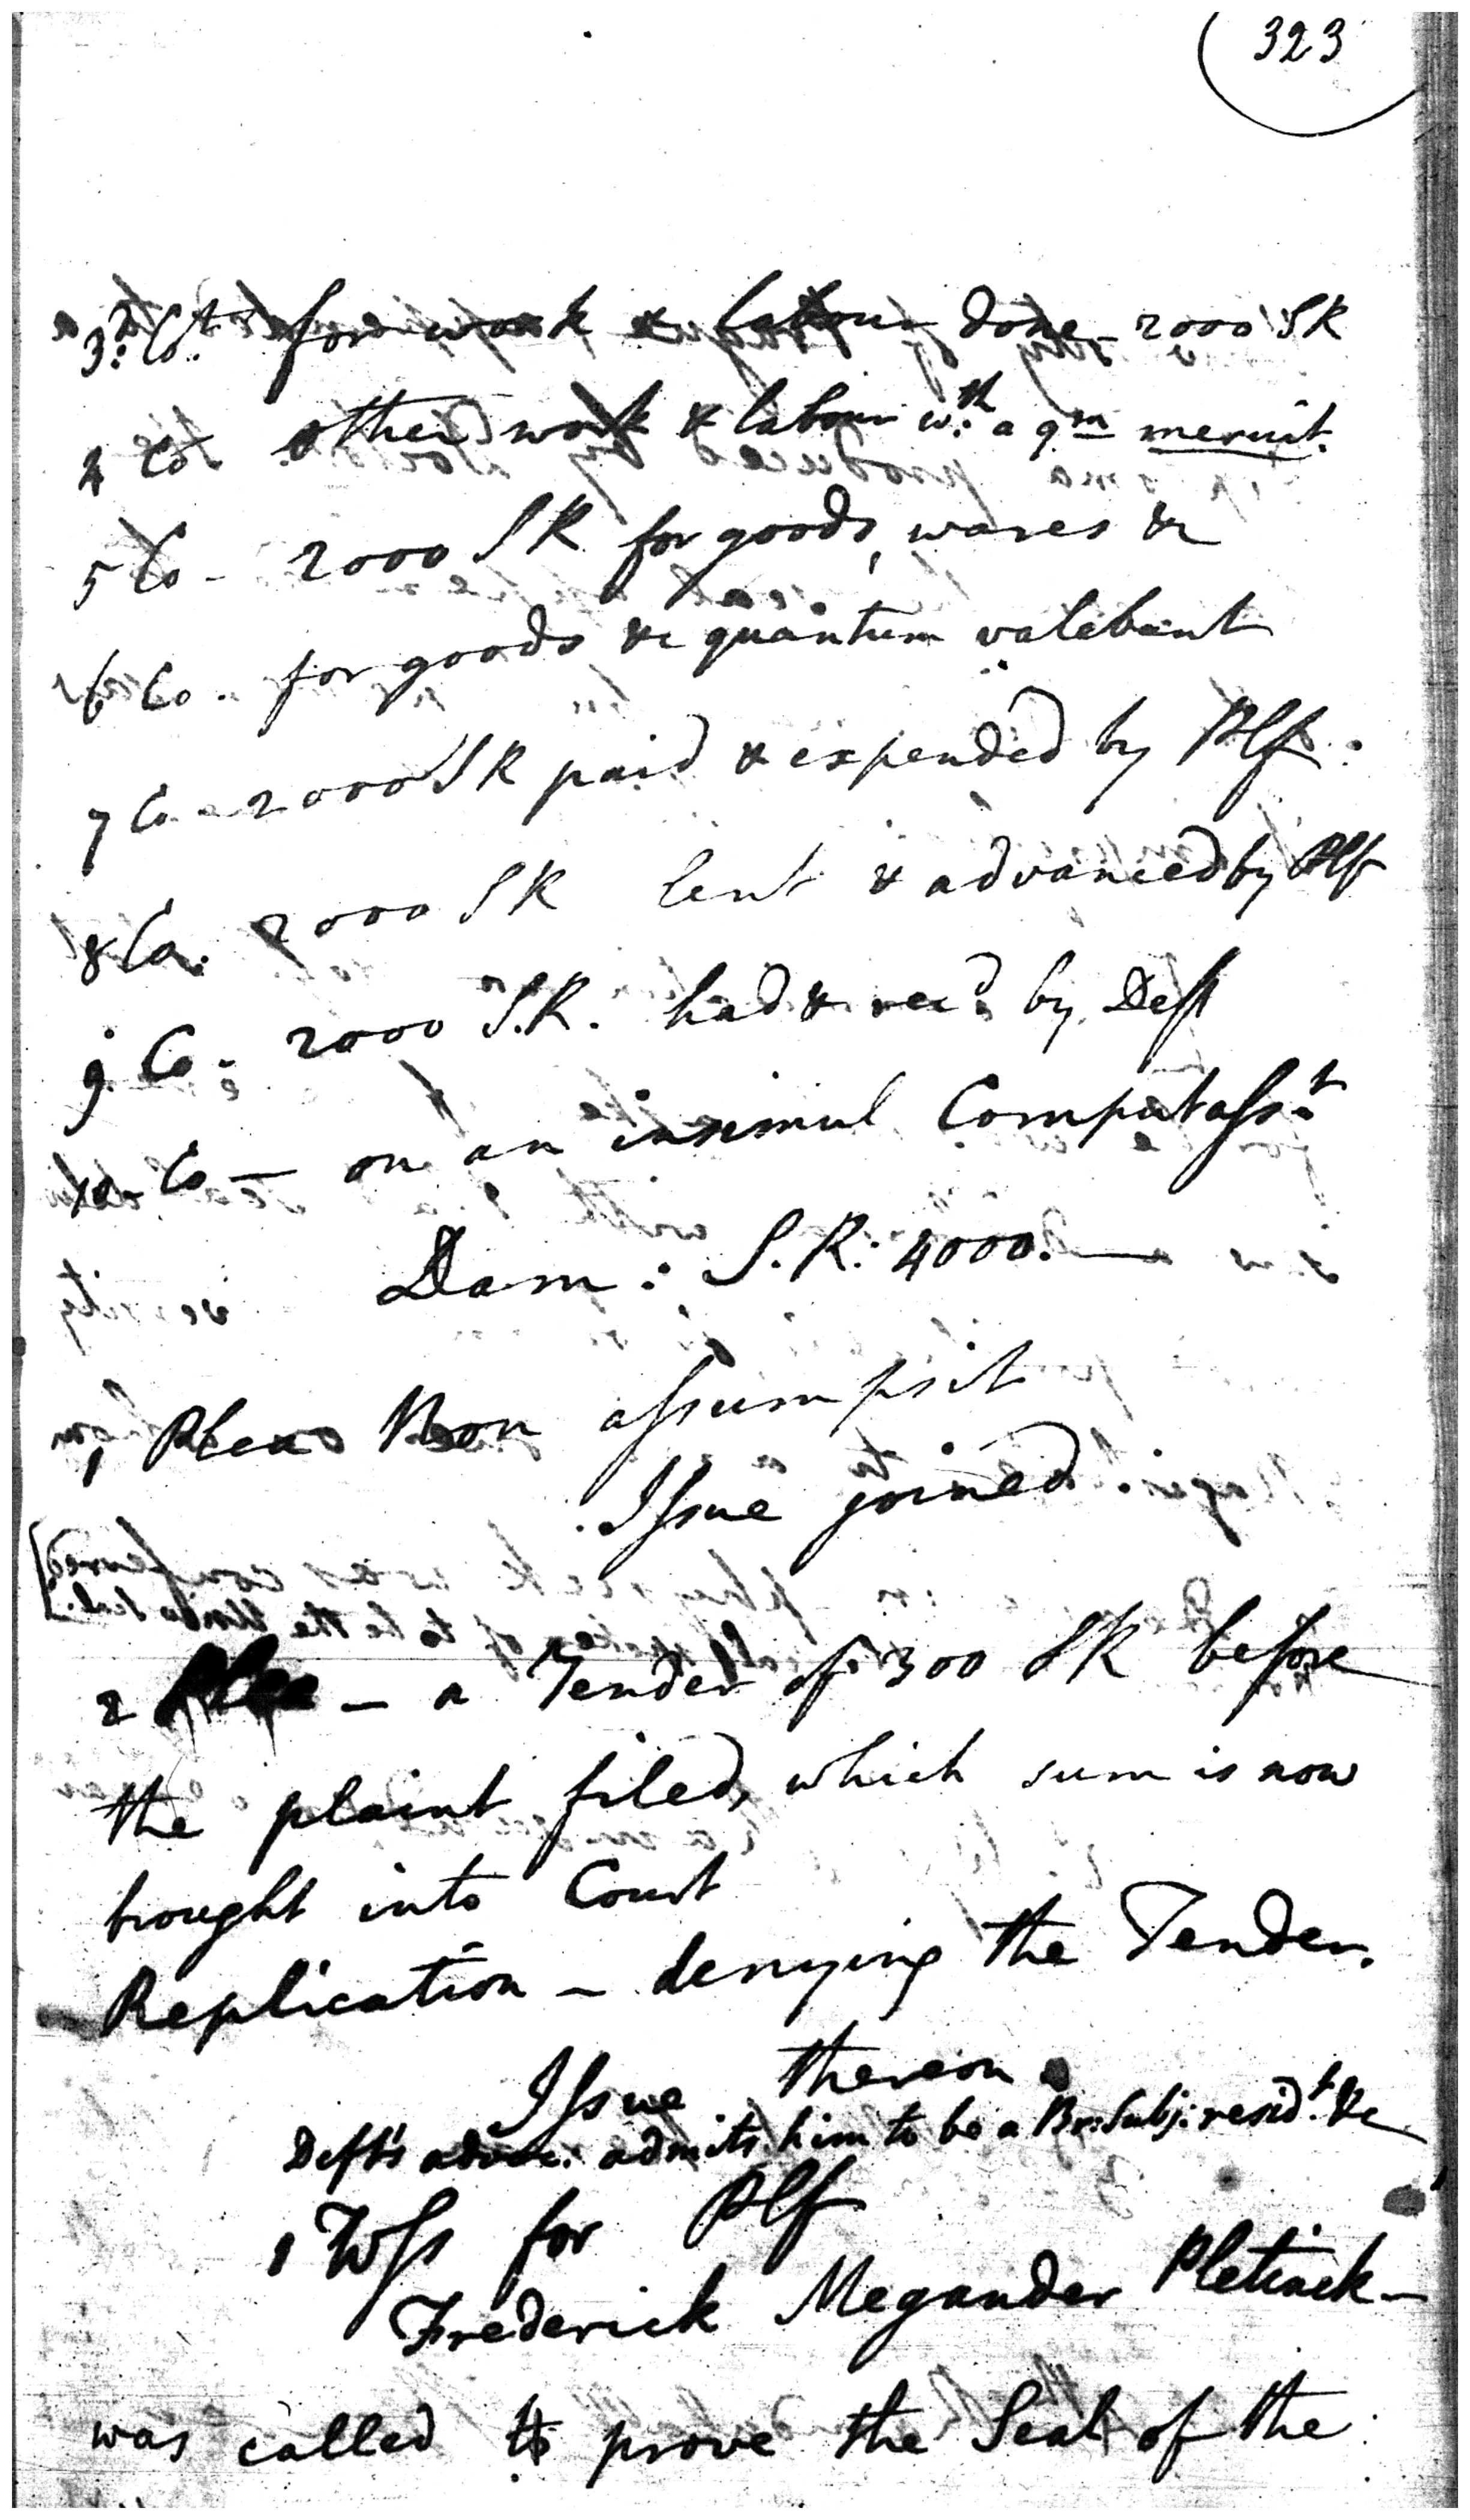 323
3.d Ct. for work & labour done - 2000 SR
4 Co other work & labour w.th a qm meruit.
5 Co - 2000 SR for goods, wares &c
6 Co. for goods &c quantum valebant
7 Co - 2000 SR paid & expended by Plf.
8 Co. 2000 SR lent & advanced by Plf
9. Co - 2000 S.R. had & rec.d by Deft
10 Co — on an insimul Computass.t
Dam: S.R: 4000.—
1 Plea Non assumpsit
Issue joined.
2 Plea — a Tender of 300 SR before
the plaint filed, which sum is now
brought into Court
Replication — denying the Tender.
Issue thereon
Deft's advoc: admits him to be a Br: Subj: resid.t &c
1 Wss for Plf
Frederick Megander Pletinck—
was called to prove the Seal of the